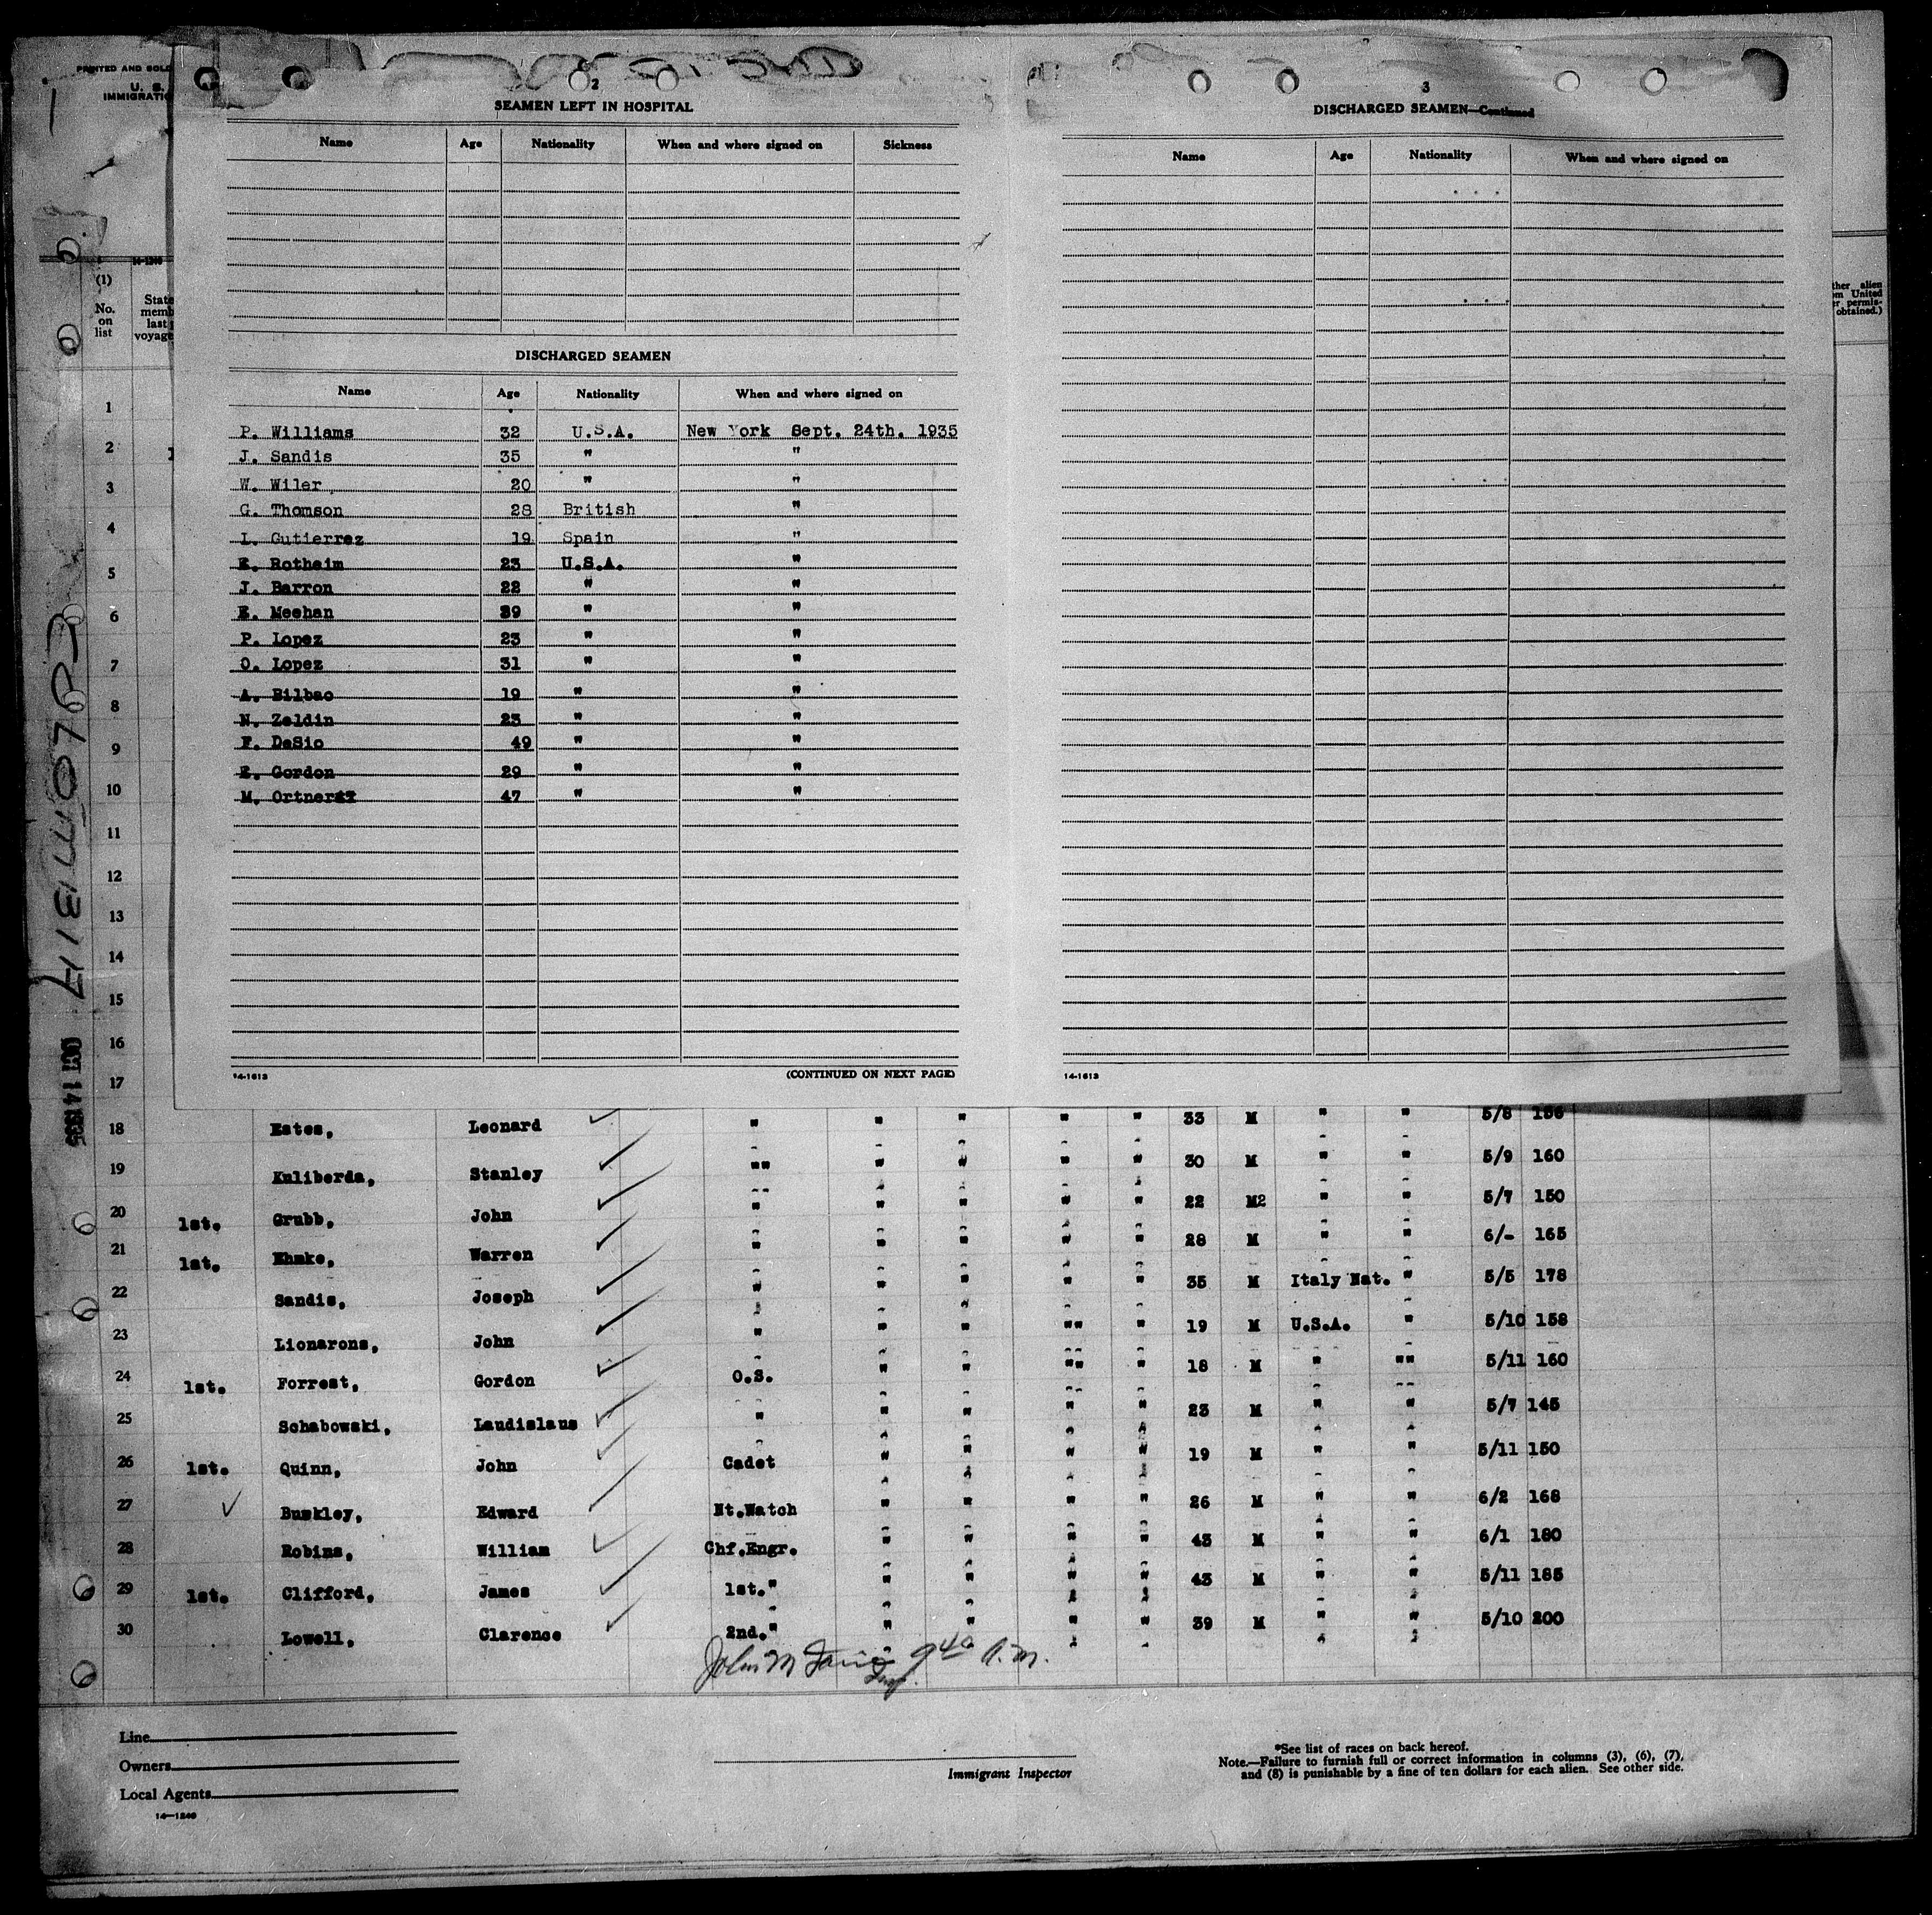 PRINTED AND SOLD
U. S.
IMMIGRATIO
2
SEAMEN LEFT IN HOSPITAL
Name Age Nationality When and where signed on Sickness
DISCHARGED SEAMEN
Name Age Nationality When and where signed on
P. Williams 32 U.S.A. New York Sept. 24th. 1935
J. Sandis 35 " "
W. Wiler 20 " "
G. Thomson 28 British "
L. Gutierrez 19 Spain "
E. Rotheim 23 U.S.A. "
J. Barron 22 " "
E. Meehan 29 " "
P. Lopez 23 " "
O. Lopez 31 " "
A. Bilbao 19 " "
N. Zeldin 23 " "
F. DeSio 49 " "
E. Gordon 29 " "
M. Ortner 47 " "
14-1613 (CONTINUED ON NEXT PAGE)
3
DISCHARGED SEAMEN—Continued
Name Age Nationality When and where signed on
14-1613
14-1240
(1)
No.
on
list
State
memb
last
voyage
ther alien
om United
er permis-
obtained.)
1
2
3
4
5
6
7
8
9
10
11
12
13
14
15
16
17
OCT 14 1935
18 Eates, Leonard " " " " " 33 M " " 5/8 156
19 Kuliberda, Stanley "" " " " " 30 M " " 5/9 160
20 1st. Grubb, John " " " " " 22 M2 " " 5/7 150
21 1st. Ehmke, Warren " " " " " 28 M " " 6/- 165
22 Sandis, Joseph " " " " " 35 M Italy Nat. " 5/5 178
23 Lionarons, John " " " "" " 19 M U.S.A. " 5/10 158
24 1st. Forrest, Gordon O.S. " " "" " 18 M " "" 5/11 160
25 Schabowski, Laudislaus " " " " " 23 M " " 5/7 145
26 1st. Quinn, John Cadet " " " " 19 M " " 5/11 150
27 Buckley, Edward Nt.Watch " " " " 26 M " " 6/2 168
28 Robins, William Chf.Engr. " " " " 43 M " " 6/1 180
29 1st. Clifford, James 1st." " " " " 43 M " " 5/11 185
30 Lowell, Clarence 2nd." " " " " 39 M " " 5/10 200
John M 9 40 A.M.
Insp.
Line
Owners
Local Agents
14—1240
Immigrant Inspector
*See list of races on back hereof.
Note.—Failure to furnish full or correct information in columns (3), (6), (7),
and (8) is punishable by a fine of ten dollars for each alien. See other side.